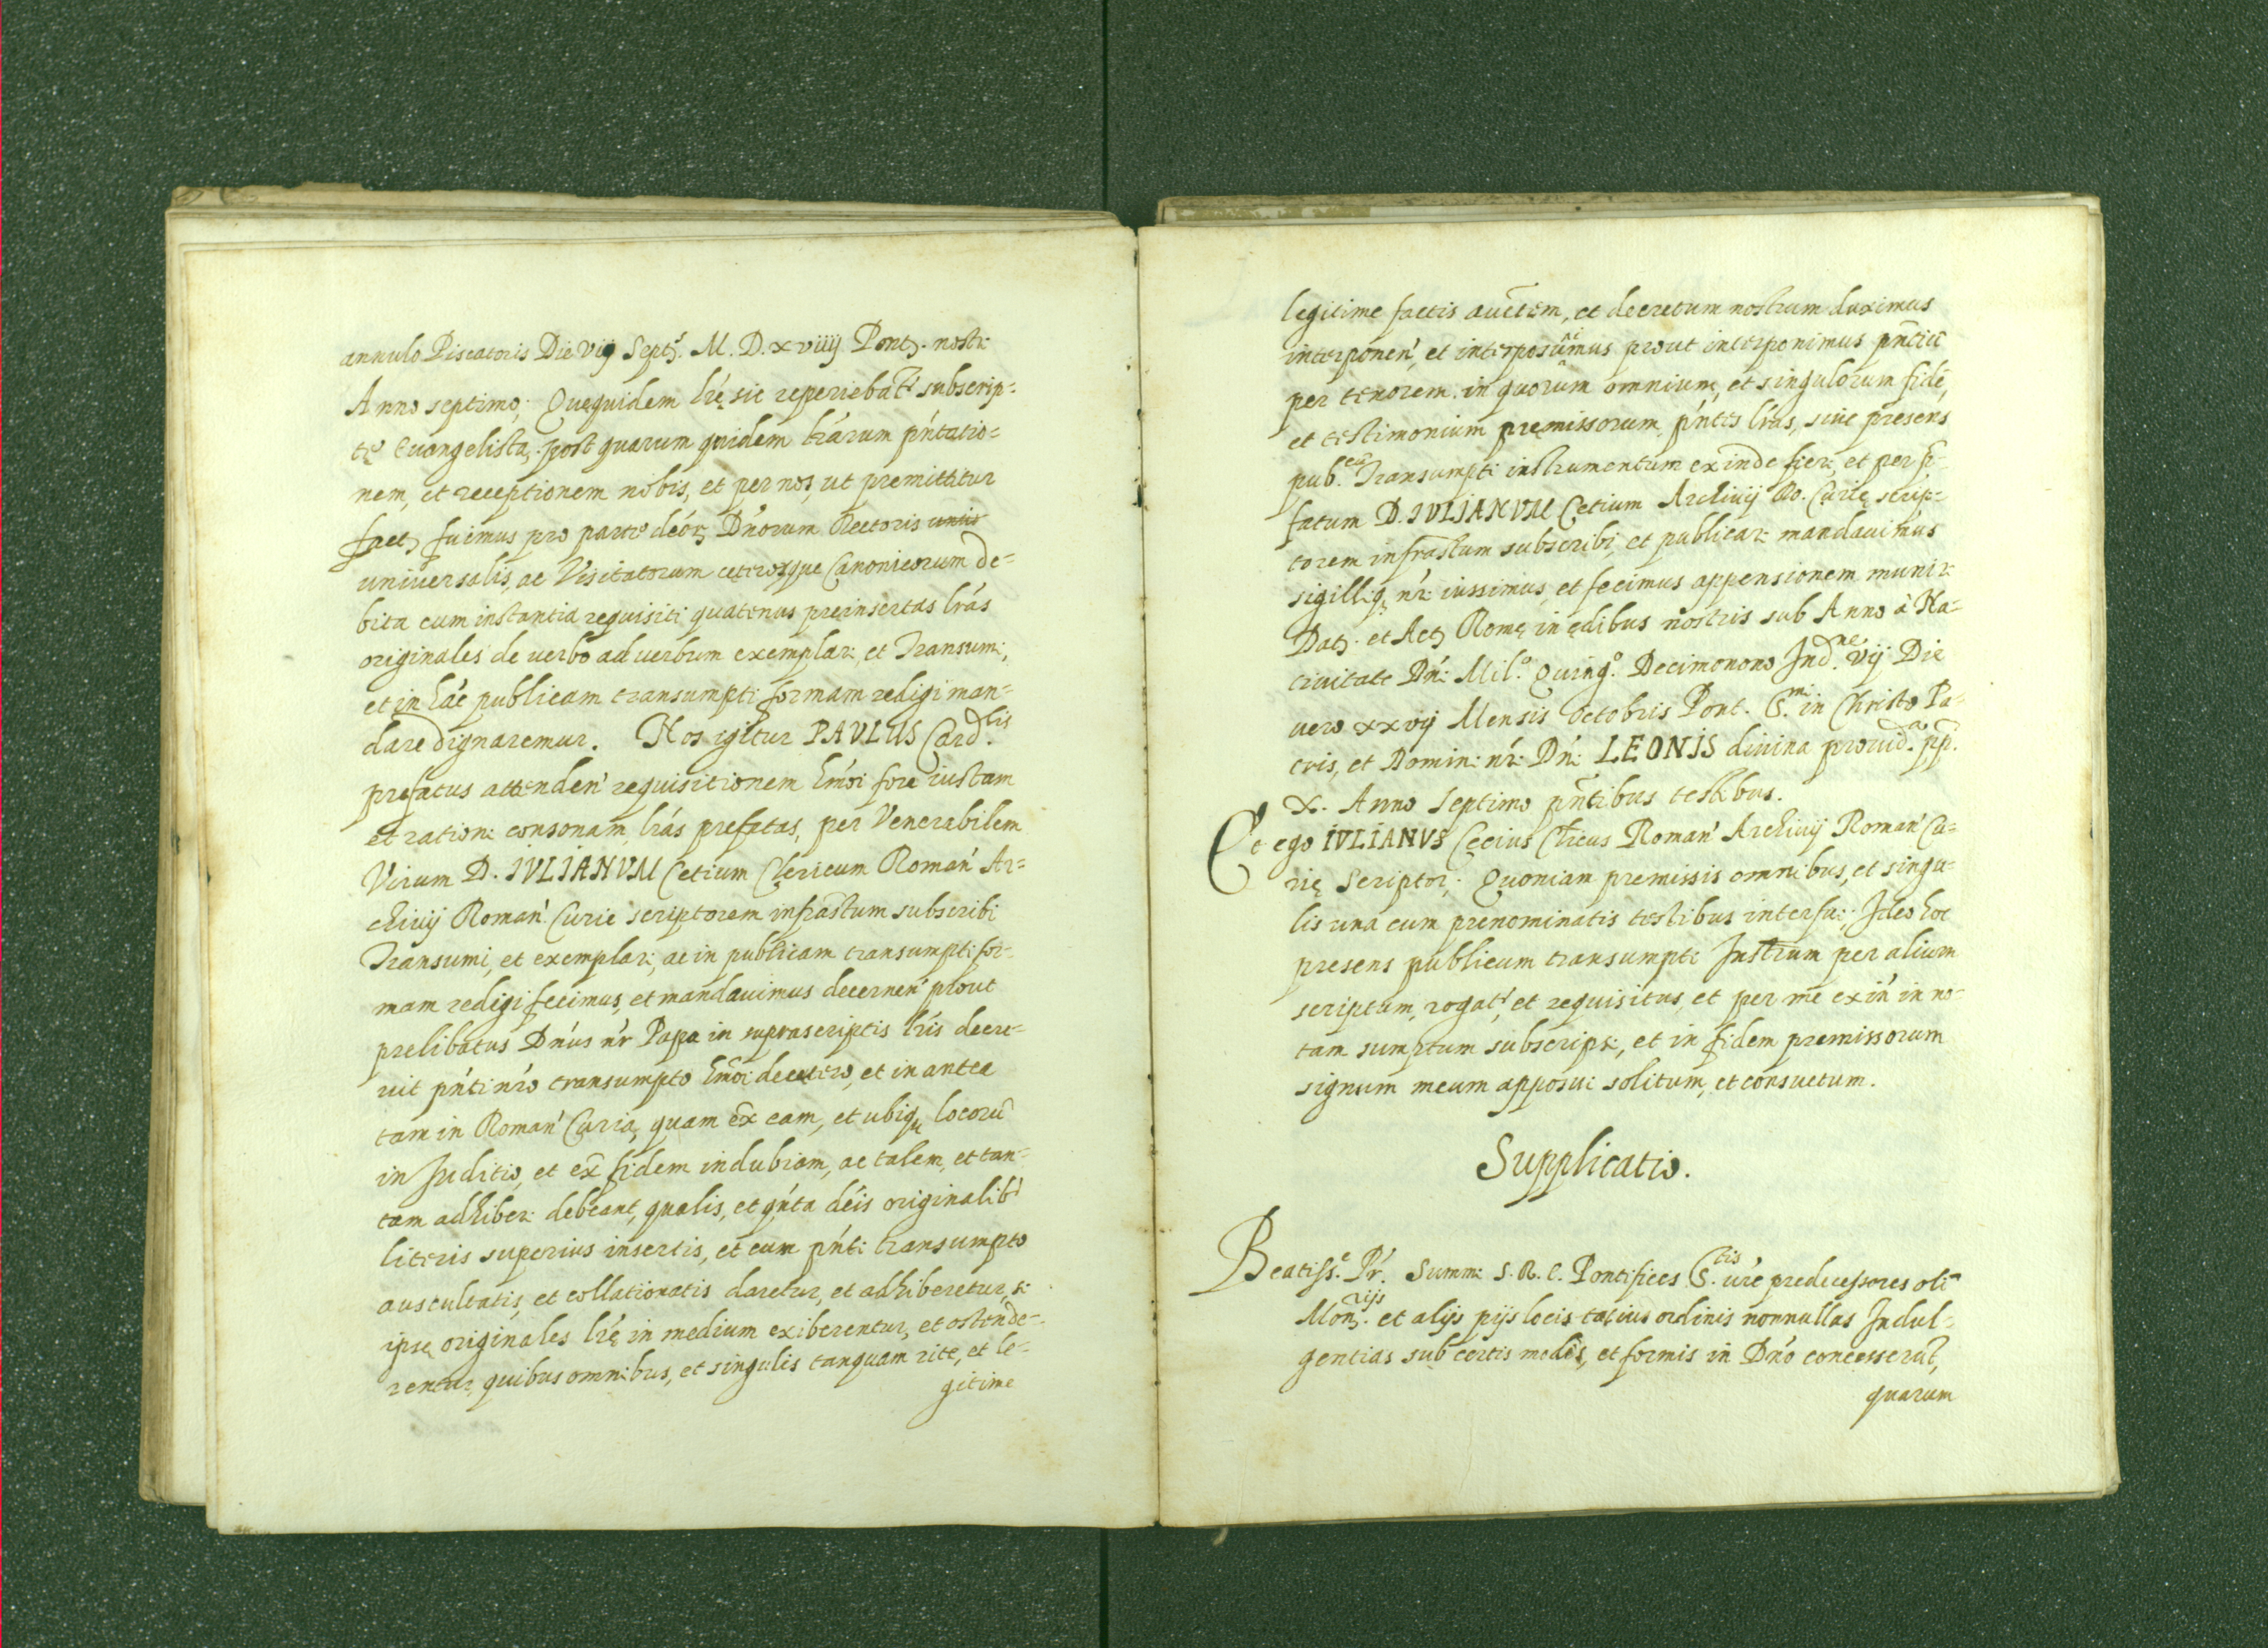 annulo Piscatoris Die Viij Septr̃. M. D. xviiij Pontʒ. nostri
Anno septimo; Quęquidem lŕę sic reperiebatr̃ subscrip=
tę Euangelista, post quarum quidem lŕarum pńtatio=
nem, et receptionem nobis, et per nos, ut premittitur
factʒ fuimus pro parte déorʒ Dńorum Rectoris unis
universalis, ac Visitatorum ceterosque Canonicorum de=
bita cum instantia requisiti quatenus preinsertas lŕas
originales de uerbo ad uerbum exemplari et Transumi,
et in hác publicam transumpti formam redigi man=
dare dignaremur. Nos igitur PAVLUS Card.lis
prefatus attenden' requisitionem hm̃oi fore iustam
et rationi consonam, lŕas prefatas, per Venerabilem
Virum D. IVLIANVM Cetium Clericum Roman' Ar=
chiuij Roman' Curie scriptorem infrastum subscribi
Transumi, et exemplari, ac in publicam transumpti for-
mam redigi fecimus, et mandauimus decernen' prout
prelibatus Dńus nŕ Papa in suprascriptis lŕis decre=
uit pńti nŕo transumpto hm̃oi decetero, et in antea
tam in Roman' Curia, quam ex̃ eam, et ubiqʒ locorũ
in Juditio, et ex̃ fidem indubiam, ac talem, et tan-
tam adhiberi debeant, qualis, et qńta déis originalib'
literis superius insertis, et cum pńti transumpto
auscultatis, et collationatis daretur, et adhiberetur, si
ipsę originales lŕę in medium exiberentur, et ostende-
rentur, quibus omnibus, et singulis tanquam rite, et le-
gitime
legitime factis auc̃tem, et decretum nostrum duximus
interponen', et interposuimus prout interponimus pñtiũ
per tenorem. in quorum omnium, et singulorum fidé,
et testimonium premissorum pńtes lŕas, siue presens
pub.cũ Transumpti instrumentum exinde fieri et per p̃-
fatum D. IVLIANVM Cetium Archiuij Ro. Curię scrip=
torem infrastum subscribi, et publicari mandauimus
sigilliqʒ nŕi iussimus, et fecimus appensionem muniri
Datʒ. et Actʒ Romę in ędibus nostris sub Anno à Na=
tiuitate Dńi Mil.o Quing.o Decimonono Ind.ne vij Die
uero xxvij Mensis Octobris Pont. S.mi in Christo Pa-
tris, et Domini nŕi Dńi LEONIS diuina prouid.a pp.
X. Anno Septimo pñtibus testibus.
Et ego IVLIANVS Cecius Clicus Roman' Archiuij Roman' Cu=
rię Scriptor; Quoniam premissis omnibus, et singu=
lis una cum prenominatis testibus interfui; Ideo hoc
presens publicum transumpti Instrum per alium
scriptum, rogat', et requisitus, et per me exin' in no-
tam sumptum subscripsi, et in fidem premissorum
signum meum apposui solitum, et consuetum.
Supplicatio.
Beatiss.e Pŕ. Summi S. R. E. Pontifices S.tis ure predecessores olĩ
Monʒ.rijs et alijs pijs locis tatius ordinis nonnullas Indul=
gentias sub certis modis, et formis in Dńo concesserut̃,
quarum